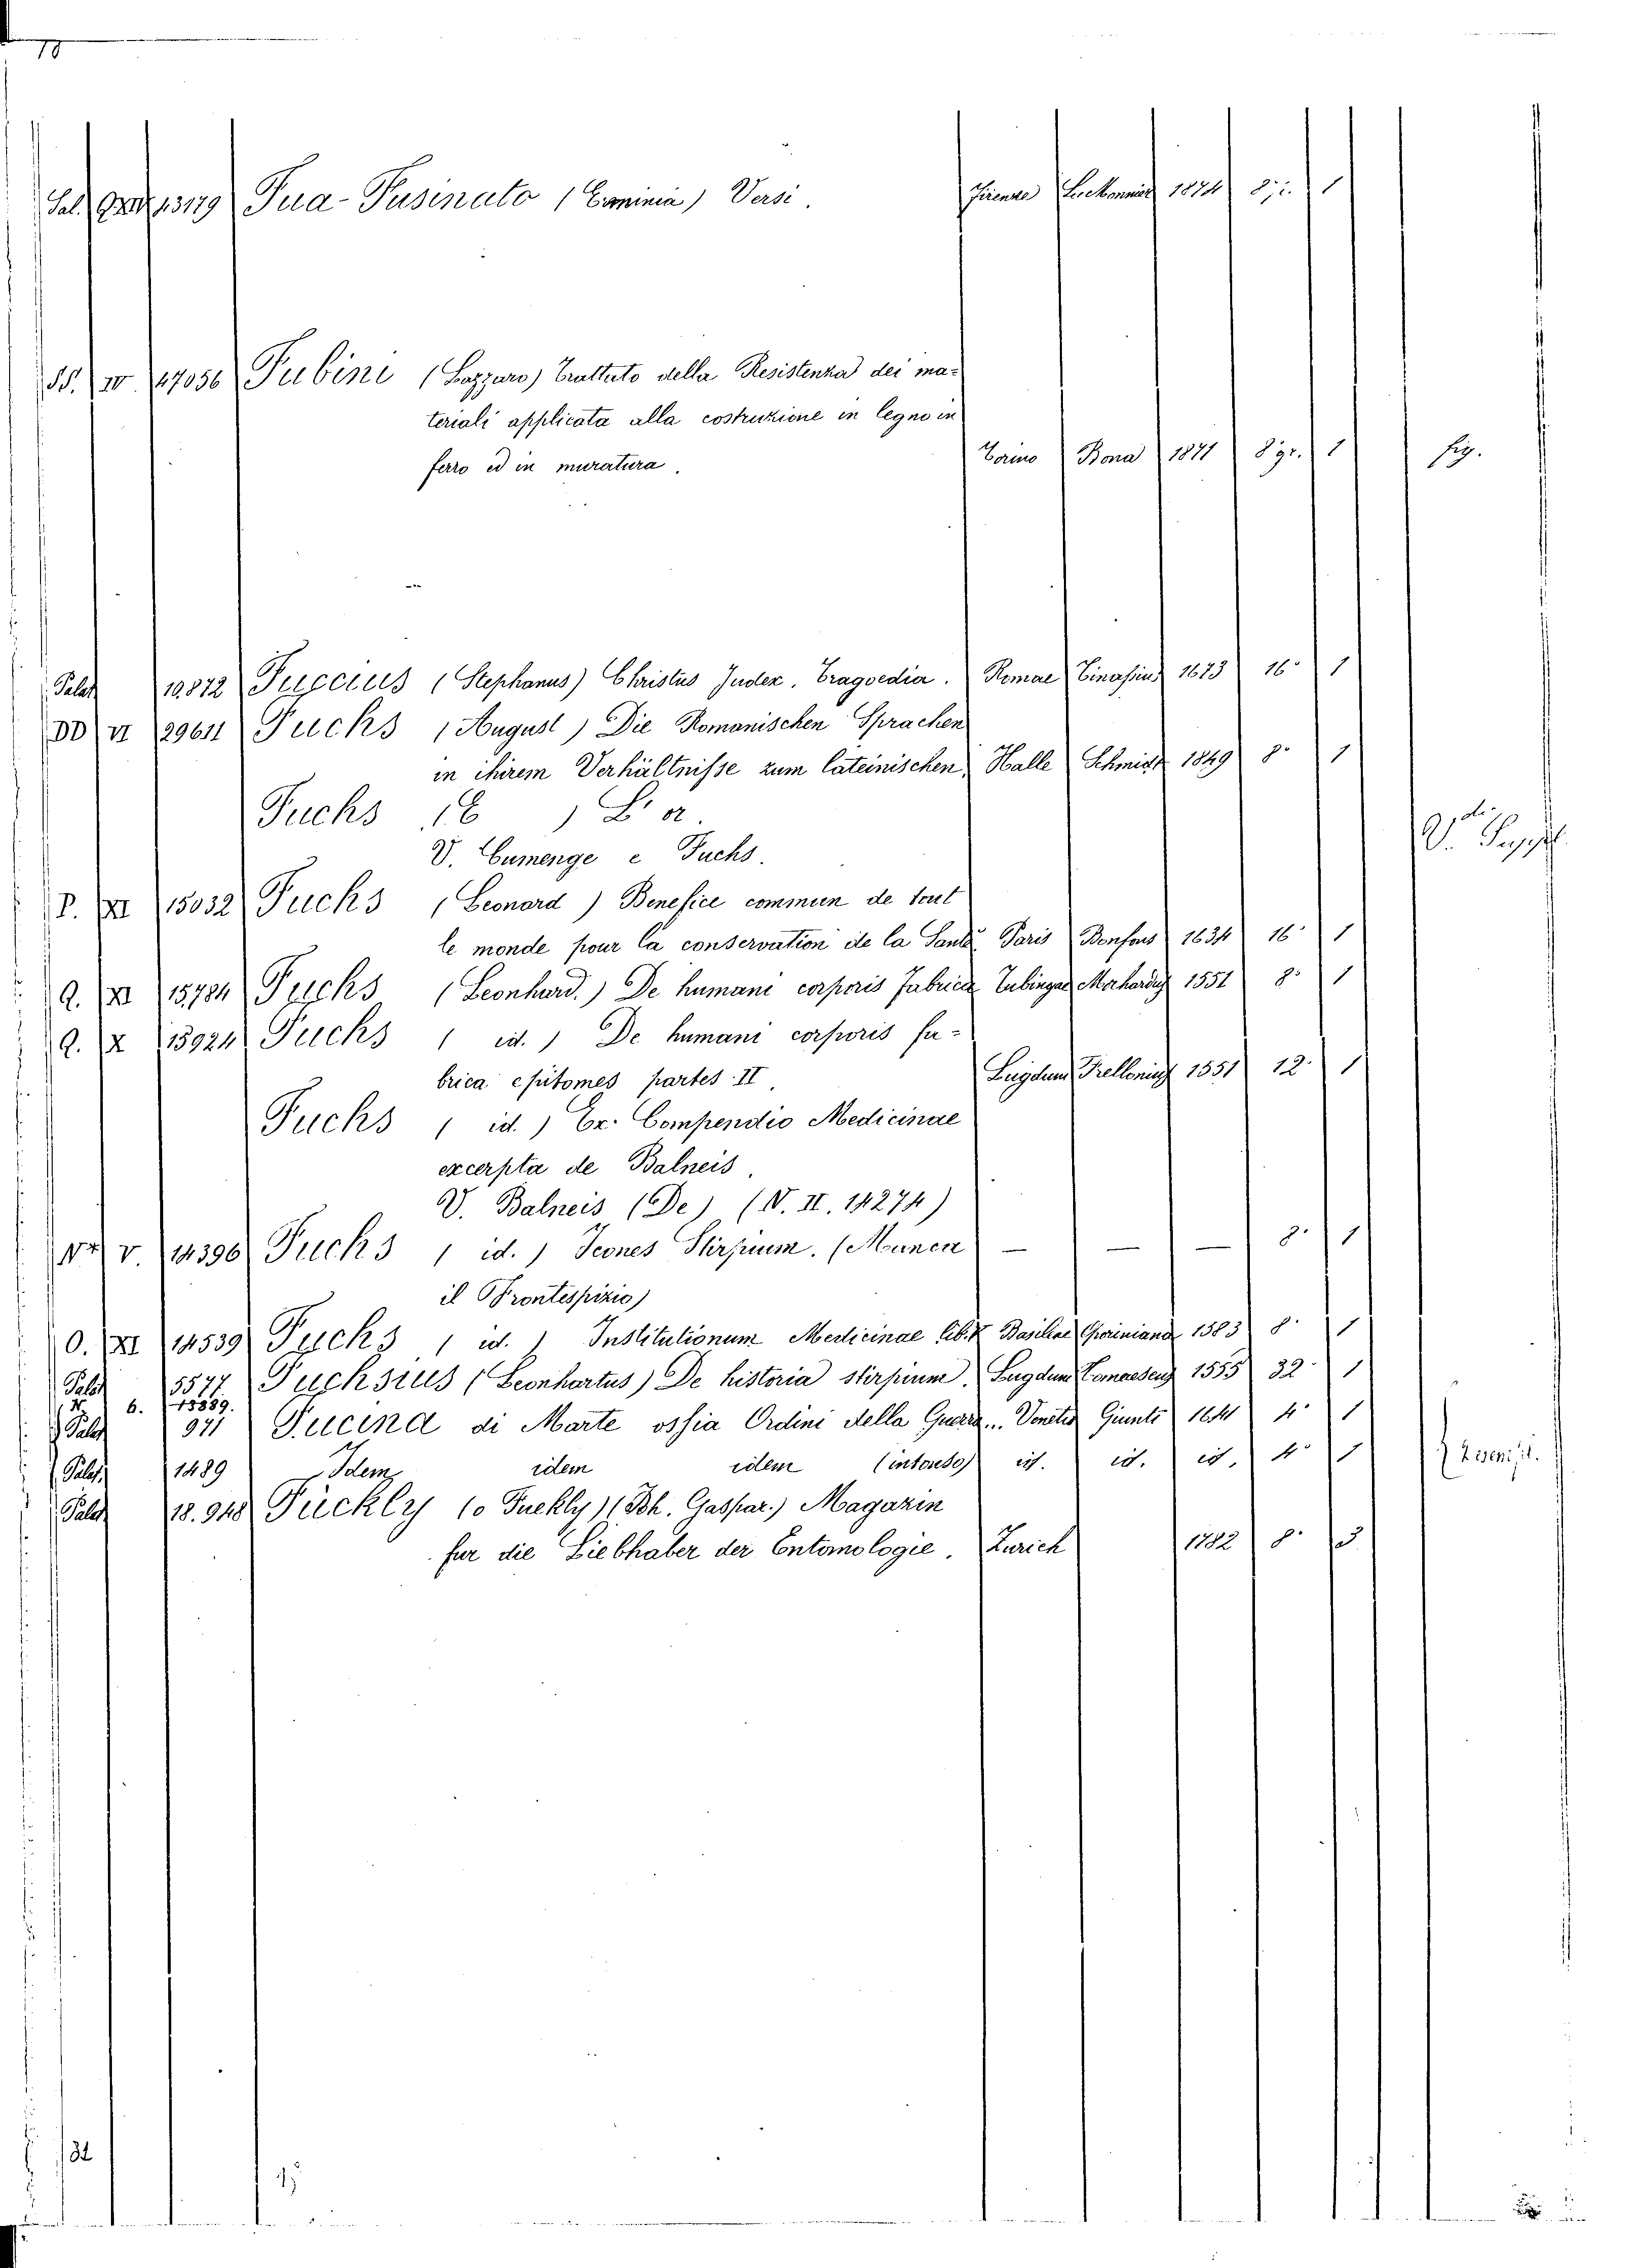 78
Sal. 13179 Fua-Fusinato (Erminia) Versi. Firenze 1874 8 1
SS. IV 47056 Fubini (Lazzaro) Trattato della Resistenza dei ma-
teriali applicata alla costruzione in legno in
ferro ed in muratura. Torino Bona 1871 8 gr. 1 fig.
Palat 10812 Fuccius (Stephanus) Christus Judex. Tragoedia. Romae Tinassius 1673 16° 1
DD VI 29611 Fuchs (August) Die Romanischen Sprachen
in ihirem Verhältnisse zum lateinischen, Halle Schmidt 1849 8° 1
Fuchs (E )
V. Eumenge e Fuchs.
P. XI 15032 Fuchs (Leonard) Benefice commun de tout
le monde pour la conservation de la Santé Paris Bonfons 1634 16° 1
Q. XI 15784 Fuchs (Leonhard.) De humani corporis fabrica Tubingae Morhardus 1551 8° 1
Q. X 15924 Fuchs ( id. ) De humani corporis fa-
brica epitomes partes II. Lugduni Frellonius 1551 12. 1
Fuchs ( id. ) Ex Compendio Medicinae
excerpta de Balneis.
V. Balneis (De) (V. II. 14274)
V 14396 Fuchs ( id. ) Icones Stirpium. (Manca — — — 8. 1
il Frontespizio)
O. XI 14539 Fuchs ( id. ) Institutionum Medicinae lib. V Basileae Oporiniana 1583 8° 1
Palat 5577 Fuchsius (Leonhartus) De historia stirpium. Lugduni 1555 32 1
6. 15889.
Palat 971 Fucina di Marte ossia Ordini della Guerra... Venetia Giunti 1641 4° 1
Palat. 1489 Idem idem idem (intonso) id. id. id. 4° 1
Palat 18.948 Fückly (o Fuekly) (Joh. Gaspar.) Magazin
fur die Liebhaber der Entomologie. Zurich 1782 8° 3